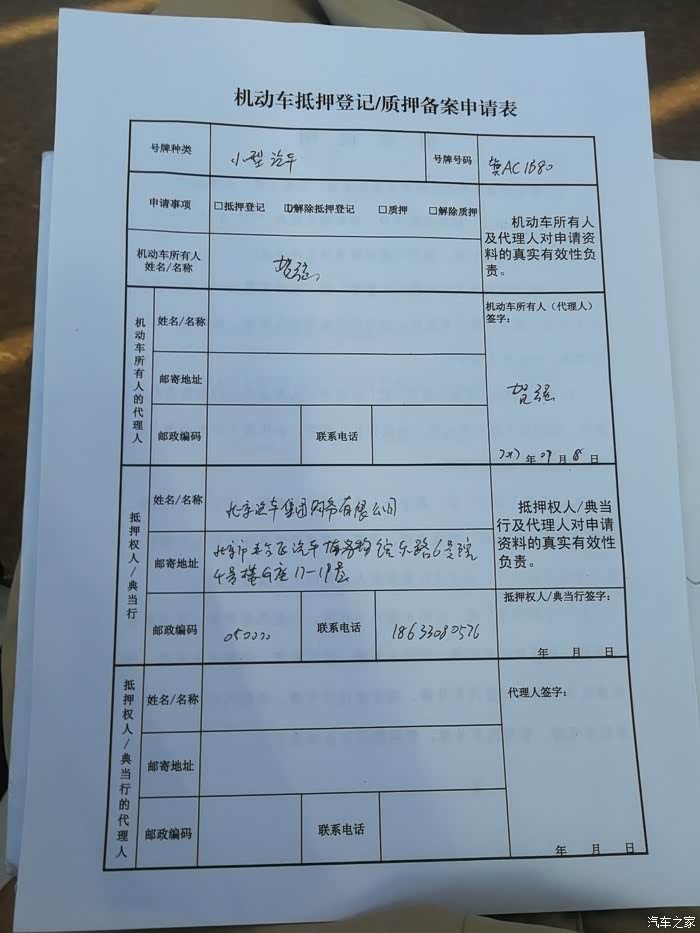 机动车抵押登记/质押备案申请表
号牌种类 小型汽车 号牌号码 冀AC1B80
申请事项 □抵押登记 ☑解除抵押登记 □质押 □解除质押
机动车所有人
及代理人对申请资
料的真实有效性负
责。
机动车所有人
姓名/名称
机动车所有人的代理人
姓名/名称
邮寄地址
邮政编码 联系电话
机动车所有人（代理人）
签字：
年 09 月 日
抵押权人/典当行
姓名/名称 北京汽车集团财务有限公司
邮寄地址 北京市 汽车 路6号院
4号楼 座17-19层
邮政编码 050000 联系电话 18633080576
抵押权人/典当
行及代理人对申请
资料的真实有效性
负责。
抵押权人/典当行签字：
年 月 日
抵押权人/典当行的代理人
姓名/名称
邮寄地址
邮政编码 联系电话
代理人签字：
年 月 日
汽车之家